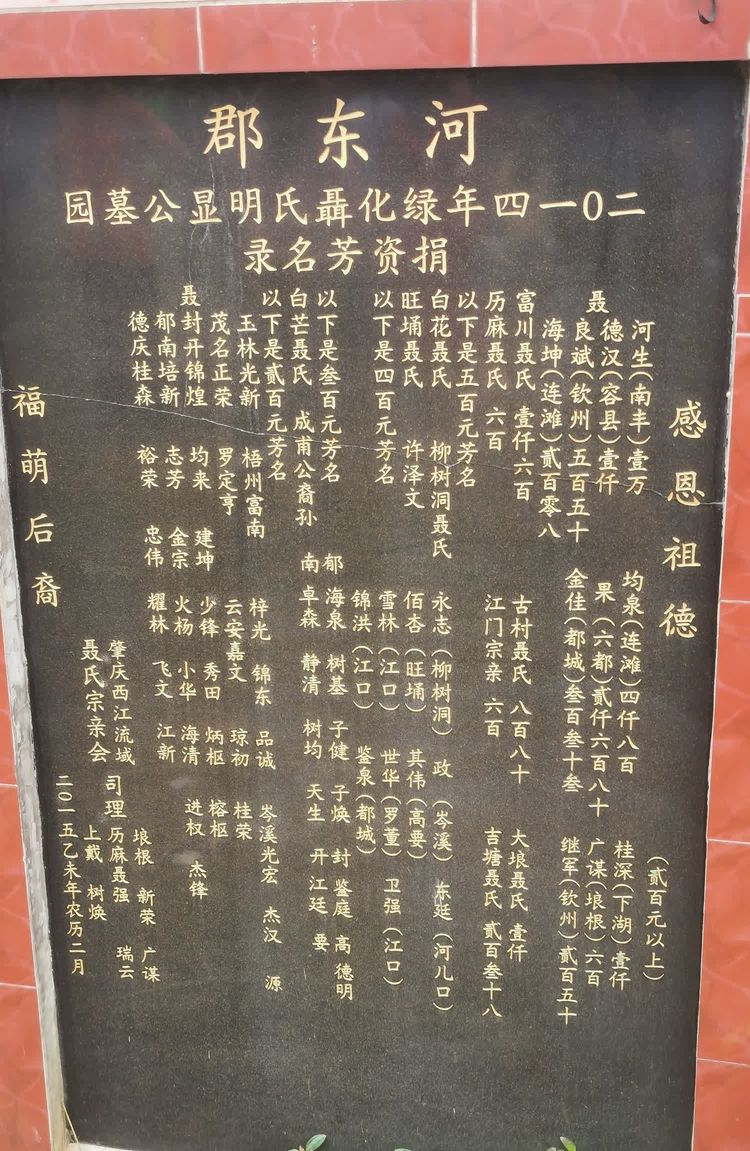 河东郡
二0一四年绿化聶氏明显公墓园
捐资芳名录
感恩祖德
(贰百元以上)
河生(南丰)壹万 均泉(连滩)四仟八百 桂深(下湖)壹仟
聂 德汉(容县)壹仟 果(六都)贰仟六百八十 广谋(埌根)六百
良斌(钦州)五百五十 金佳(都城)叁百叁十叁 继军(钦州)贰百五十
海坤(连滩)贰百零八
富川聂氏 壹仟六百 古村聂氏 八百八十 大埌聂氏 壹仟
历麻聂氏 六百 江门宗亲 六百 吉塘聂氏 贰百叁十八
以下是五百元芳名
白花聂氏 柳树洞聂氏 永志(柳树洞) 政(岑溪) 东廷(河儿口)
旺埇聂氏 许泽文 佰杏(旺埇) 其伟(高要)
以下是四百元芳名 雪林(江口) 世华(罗董) 卫强(江口)
锦洪(江口) 鉴泉(都城)
以下是叁百元芳名 郁 海泉 树基 子健 子焕 封 鉴庭 高 德明
白芒聂氏 成甫公裔孙 南 卓森 静清 树均 天生 开 江廷 要
以下是贰百元芳名
玉林光新 梧州富南 梓光 锦东 品诚 岑溪光宏 杰汉 源
茂名正荣 罗定亨 云安嘉文 琼初 桂荣
聂 封开锦煌 均来 建坤 少锋 秀田 炳枢 榕枢 杰锋
郁南培新 志芳 金宗 火杨 小华 海清 进权
德庆桂森 裕荣 忠伟 耀林 飞文 江新
肇庆西江流域
聂氏宗亲会
司理
埌根 新荣 广谋
历麻聂强 瑞云
上戴 树焕
二〇一五乙未年农历二月
福萌后裔